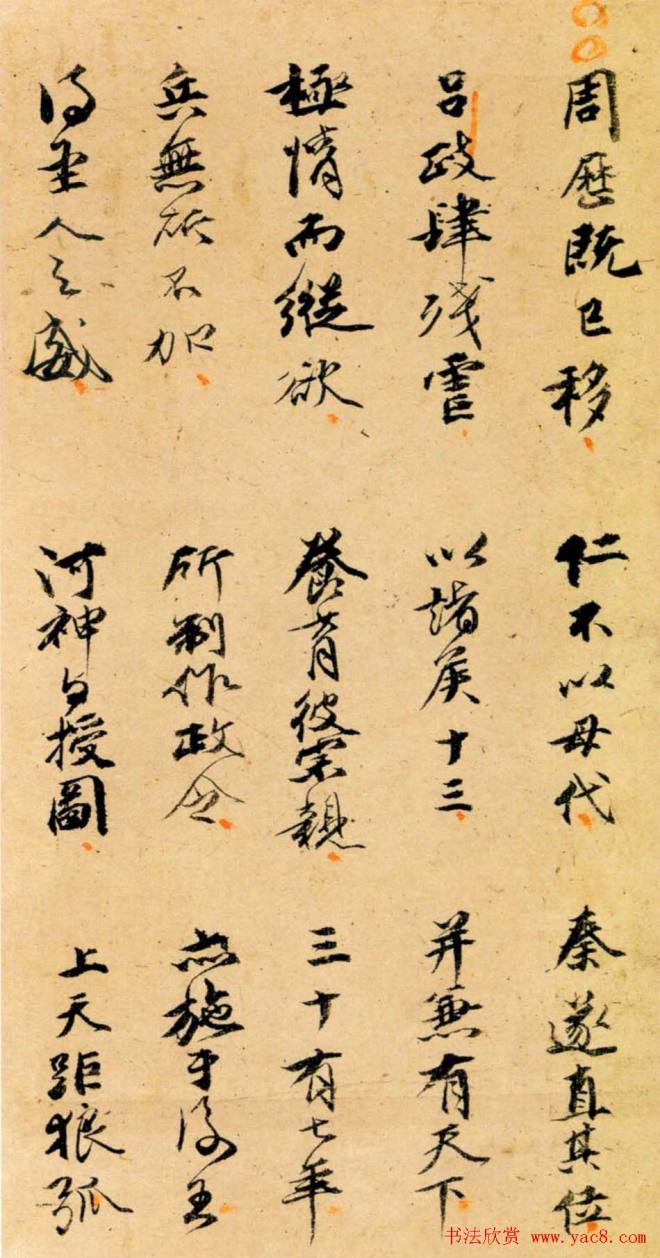 周歷既已移 仁不以母代 秦遂直其位
吕政肆残虐 以諸侯十三 并兼有天下
極情而縱欲 養育彼宗親 三十有七年
兵無所不加 所制作政令 施于後王
得聖人之威 河神与授圖 上天距狼弧
书法欣赏 www.yac8.com